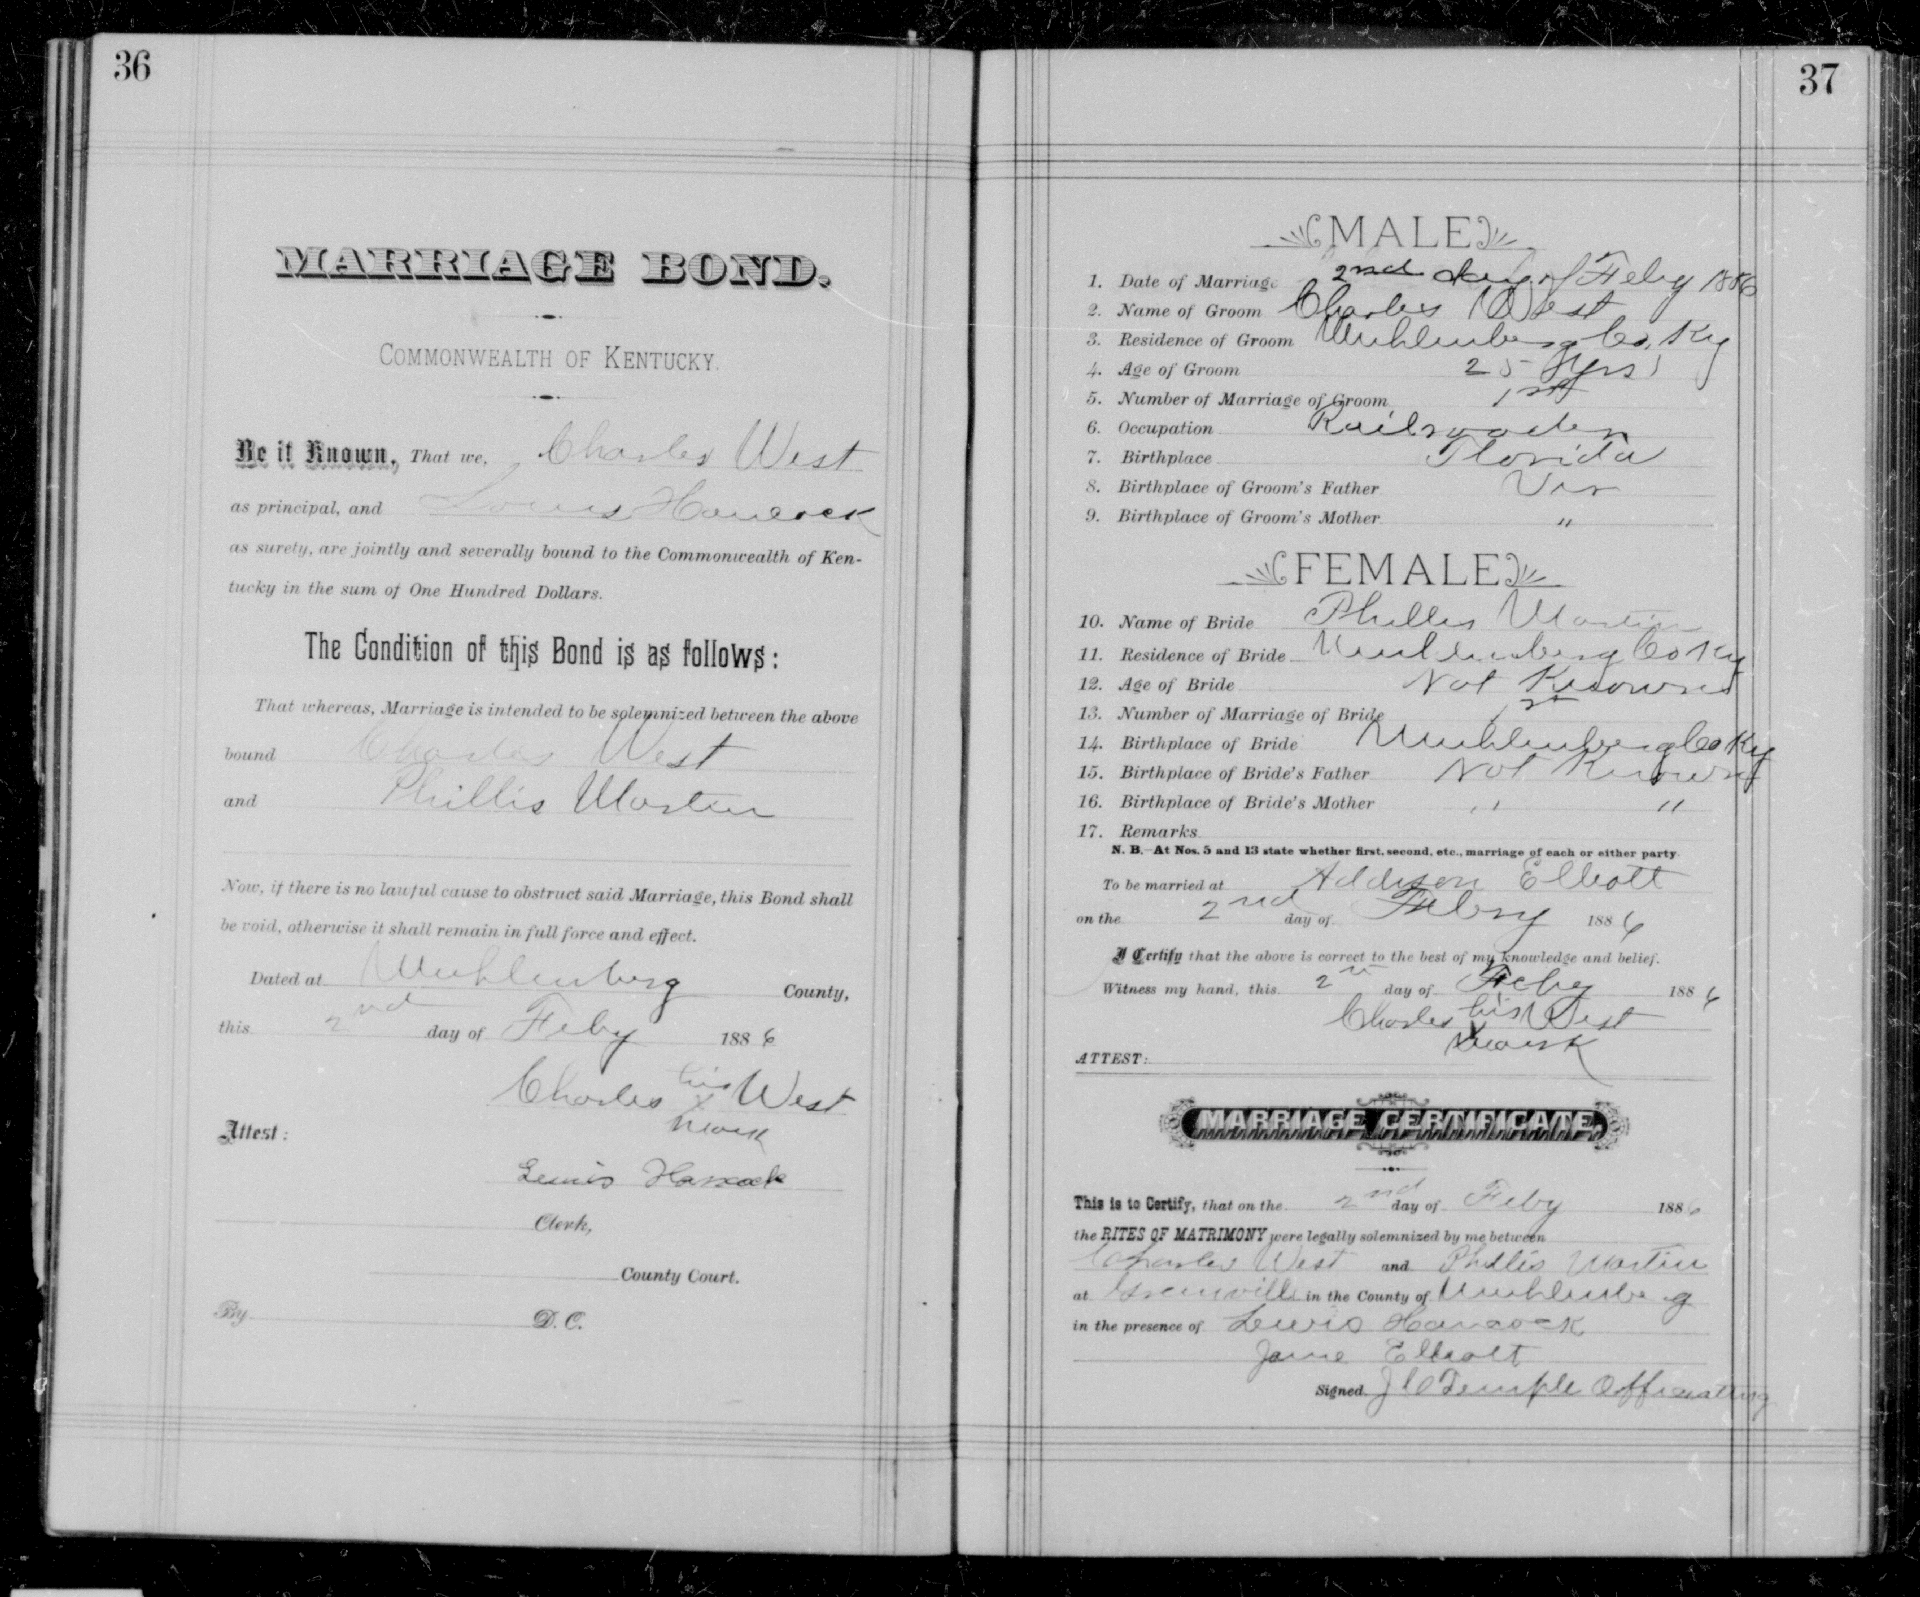 36
MARRIAGE BOND.
COMMONWEALTH OF KENTUCKY.
Be it Known, That we, Charles West
as principal, and Louis Hancock
as surety, are jointly and severally bound to the Commonwealth of Ken-
tucky in the sum of One Hundred Dollars.
The Condition of this Bond is as follows:
That whereas, Marriage is intended to be solemnized between the above
bound Charles West
and Phillis Martin
Now, if there is no lawful cause to obstruct said Marriage, this Bond shall
be void, otherwise it shall remain in full force and effect.
Dated at Muhlenberg County,
this 2nd day of Feby 1886
Charles his West
x
mark
Attest:
Lewis Hancock
Clerk,
County Court.
By D. C.
37
MALE
1. Date of Marriage 2nd day of Feby 1886
2. Name of Groom Charles West
3. Residence of Groom Muhlenberg Co, Ky
4. Age of Groom 25 Yrs
5. Number of Marriage of Groom 1st
6. Occupation Railroader
7. Birthplace Florida
8. Birthplace of Groom's Father Vir
9. Birthplace of Groom's Mother "
FEMALE
10. Name of Bride Phillis Martin
11. Residence of Bride Muhlenberg Co Ky
12. Age of Bride Not Known
13. Number of Marriage of Bride 1st
14. Birthplace of Bride Muhlenberg Co Ky
15. Birthplace of Bride's Father Not Known
16. Birthplace of Bride's Mother " "
17. Remarks
N. B.—At Nos. 5 and 13 state whether first, second, etc., marriage of each or either party
To be married at Addison Elliott
on the 2nd day of Febry 1886
I Certify that the above is correct to the best of my knowledge and belief.
Witness my hand, this 2nd day of Feby 1886
Charles his West
x
mark
ATTEST:
MARRIAGE CERTIFICATE.
This is to Certify, that on the 2nd day of Feby 1886
the RITES OF MATRIMONY were legally solemnized by me between
Charles West and Phillis Martin
at Greenville in the County of Muhlenberg
in the presence of Lewis Hancock
Jane Elliott
Signed J C Temple Officiating